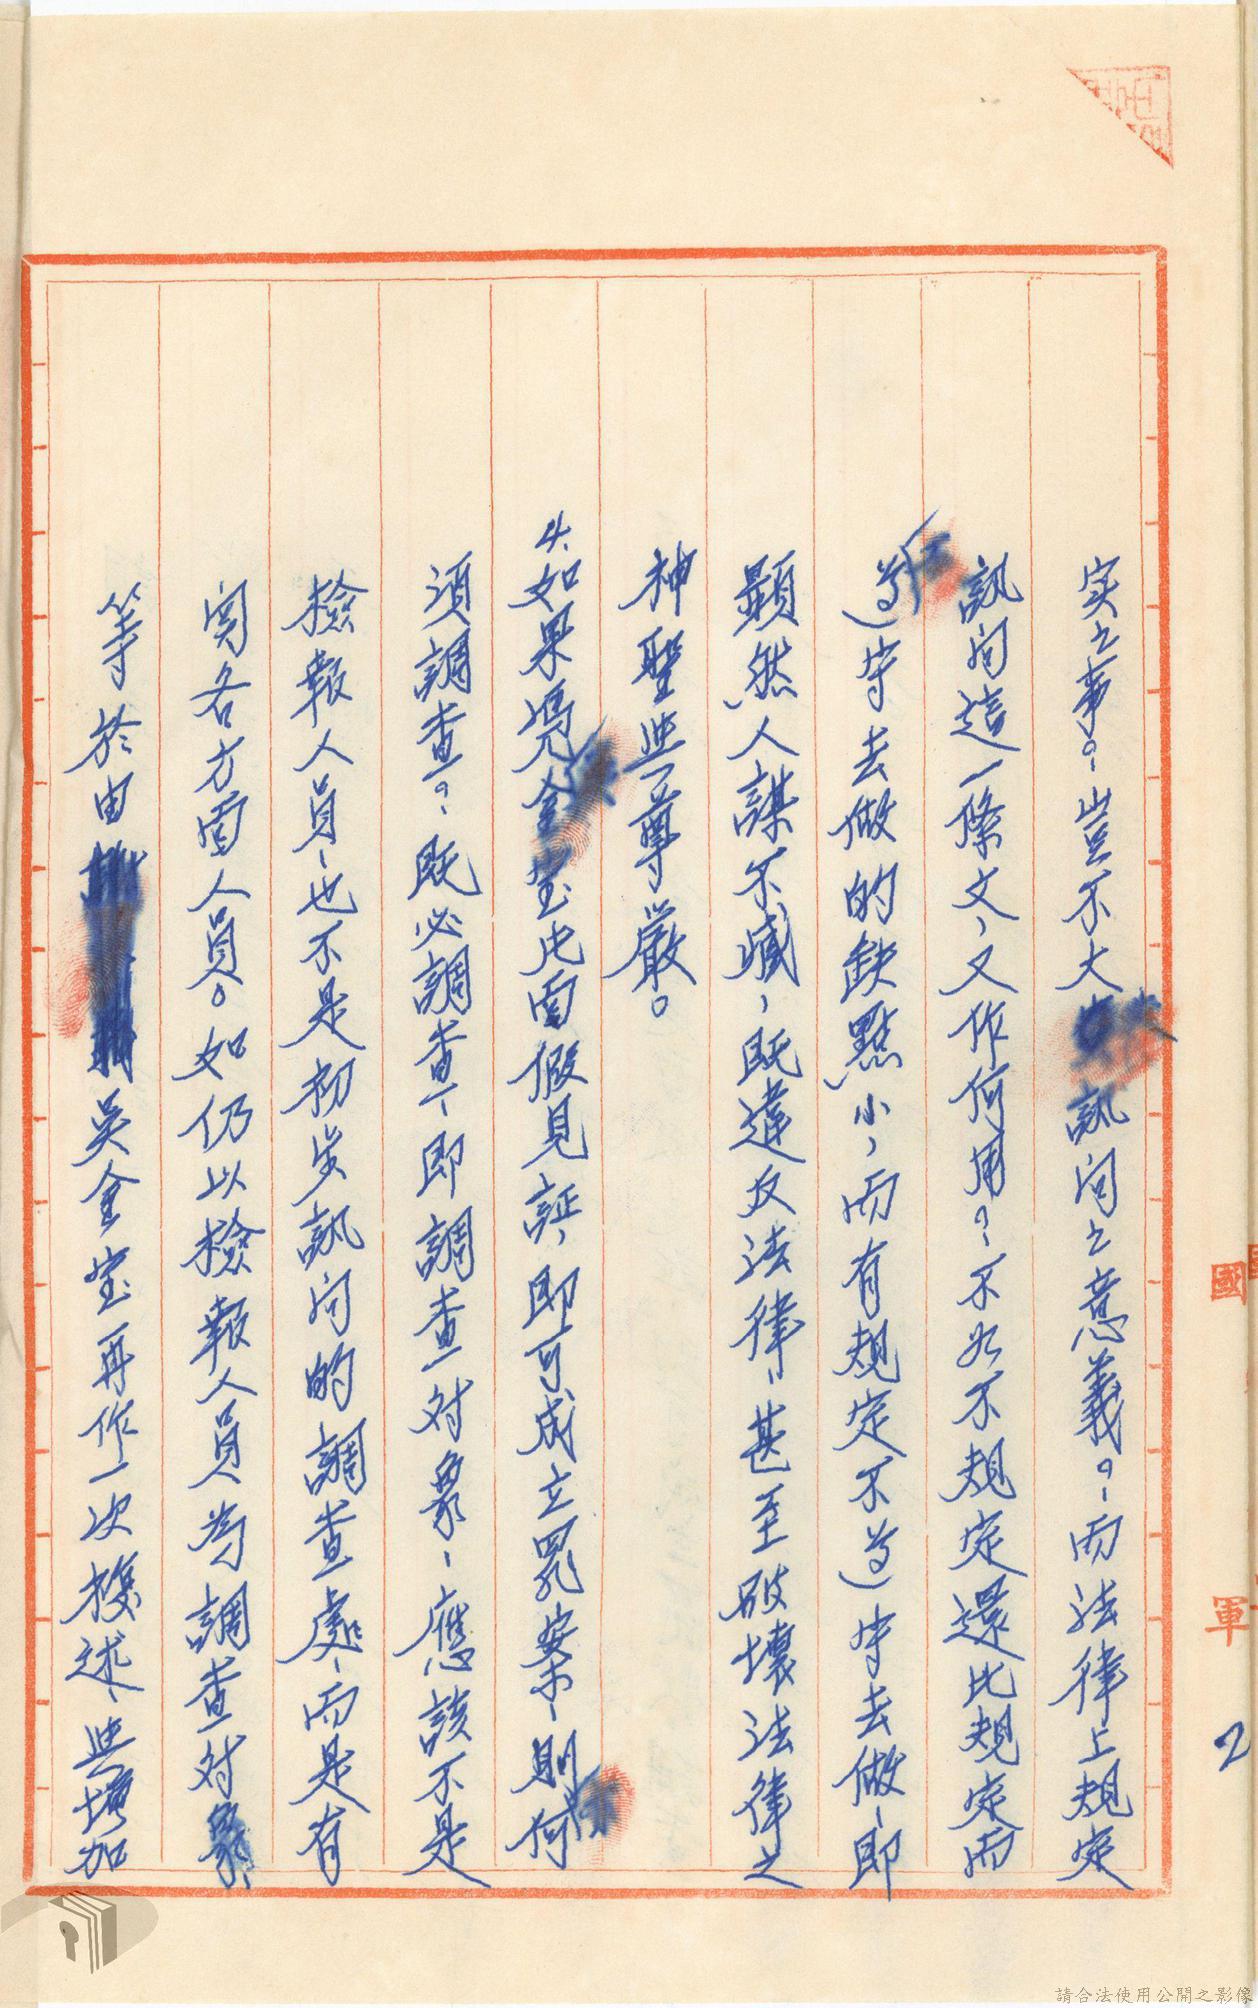 实之事?豈不大失訊问之意義?而法律上規定
訊问這一條文,又作何用?不如不規定還比規定而
不遵守去做的缺點小,而有規定不遵守去做,即
顯然人謀不臧,既違反法律,甚至破壞法律之
神聖與尊嚴。
4.如果憑吳金宝片面假見証,即可成立罪案,則何
須調查?既必調查,即調查对象,應該不是
檢報人員,也不是初步訊问的調查處,而是有
関各方面人員。如仍以檢報人員为調查对象,
等於由吳金宝再作一次複述,與增加
國 軍
2
請合法使用公開之影像